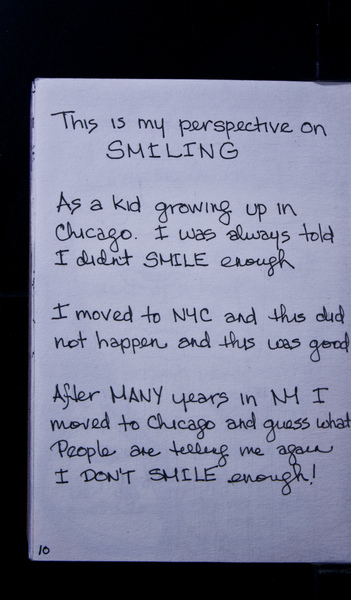 This is my perspective on
SMILING
As a kid growing up in
Chicago. I was always told
I didn't SMILE enough
I moved to NYC and this did
not happen and this was good
After MANY years in NY I
moved to Chicago and guess what
People are telling me again
I DON'T SMILE enough!
10